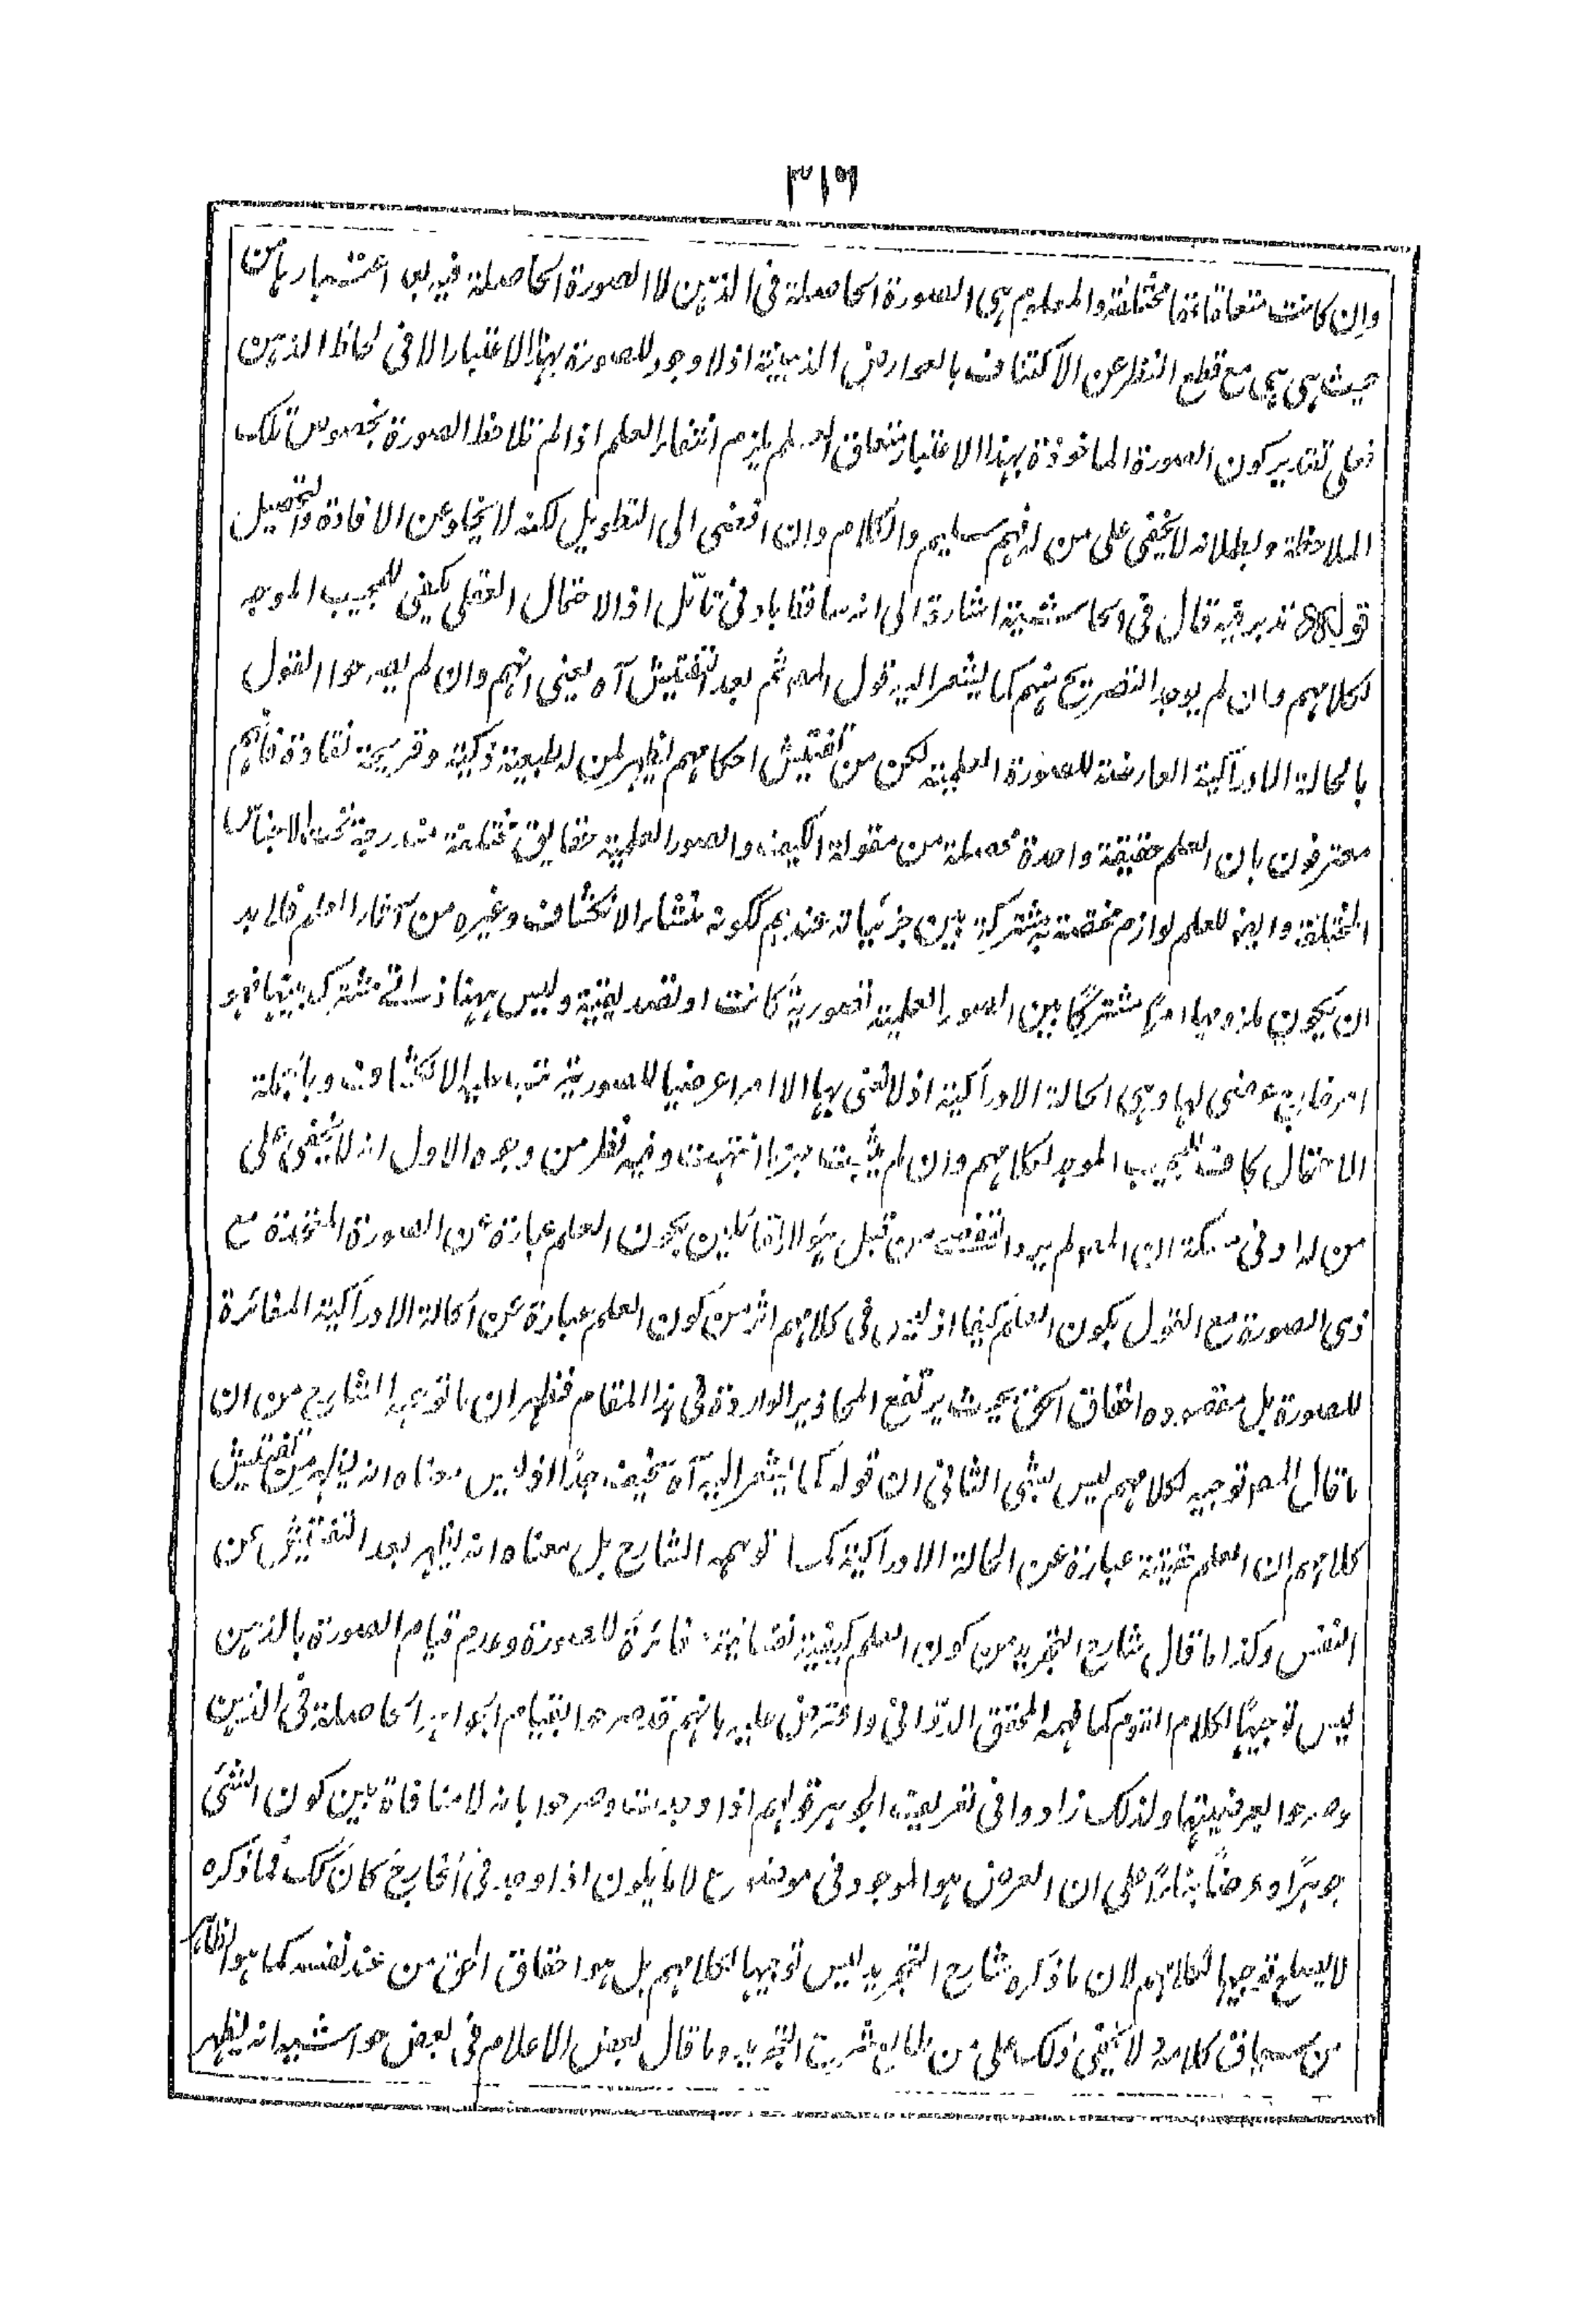 ٣١٦
وان كانت متعلقاتها مختلفة والمعلوم هي الصورة الحاصلة في الذهن لا الصورة الحاصلة فيه بل اعتبارها من
حيث هي هي مع قطع النظر عن الاكتناف بالعوارض الذهنية اذ لا وجود للصورة بهذا الاعتبار الا في لحاظ الذهن
فعلى تقدير كون الصورة الماخوذة بهذا الاعتبار متعلق العلم يلزم انتفاء العلم اذا لم تلاحظ الصورة بخصوص تلك
الملاحظة وبطلانه لا يخفى على من له فهم سليم والكلام وان افضى الى التطويل لكنه لا يخلو عن الافادة والتحصيل
قوله تدبر فيه قال في الحاشية اشارة الى انه ساقط بادنى تامّل اذ الاحتمال العقلي يكفي للمجيب الموجه
لكلامهم وان لم يوجد التصريح منهم كما يشعر اليه قول المصر ثم بعد التفتيش آه يعني انهم وان لم يصرحوا القول
بالحالة الادراكية العارضة للصورة العلمية لكن من تفتيش احكامهم يظهر لمن له طبيعة ذكية وقريحة نقادة فانهم
معترفون بان العلم حقيقة واحدة محصلة من مقولة الكيف والصور العلمية حقايق مختلفة مندرجة تحت الاجناس
المختلفة وايضا للعلم لوازم مختصة به مشتركة بين جزئياته عندهم ككونه منشاء الانكشاف وغيره من آثار العلم فلا بد
ان يكون ملزومها امرا مشتركا بين الصور العلمية تصورية كانت او تصديقية وليس ههنا ذاتي مشترك بينها فهو
امر خارج عرضي لها وهي الحالة الادراكية اذ لا نعني بها الا امرا عرضيا للصورة يترتب عليه الانكشاف وبالجملة
الاحتمال كاف للمجيب الموجه لكلامهم وان لم يثبت جزما انتهت وفيه نظر من وجوه الاول انه لا يخفى على
من له ادنى مسكة ان المصر لم يرد التفصي من قبل هؤلاء القائلين بكون العلم عبارة عن الصورة المتحدة مع
ذي الصورة مع القول بكون العلم كيفا اذ ليس في كلامهم اثر من كون العلم عبارة عن الحالة الادراكية المغائرة
للصورة بل مقصوده احقاق الحق بحيث يرتفع المحاذير الواردة في هذا المقام فظهر ان ما توهمه الشارح من ان
ما قال المصر توجيه لكلامهم ليس بشئ الثاني ان قوله كما يشعر اليه آه سخيف جدا اذ ليس معناه انه يظهر من تفتيش
كلامهم ان العلم حقيقة عبارة عن الحالة الادراكية كما توهمه الشارح بل معناه انه يظهر بعد التفتيش عن
النفس وكذا ما قال شارح التجريد من كون العلم كيفية نفسانية مغائرة للصورة وعدم قيام الصورة بالذهن
ليس توجيها لكلام القوم كما فهمه المحقق الدواني واعترض عليه بانهم قد صرحوا بقيام الجواهر الحاصلة في الذهن
وصرحوا بعرضيتها ولذلك زادوا في تعريف الجوهر قولهم اذا وجدت وصرحوا بانه لا منافاة بين كون الشئ
جوهرا وعرضا بناءا على ان العرض هو الموجود في موضوع لا ما يكون اذا وجد في الخارج كان كك فما ذكره
لا يصلح توجيها لكلامهم لان ما ذكره شارح التجريد ليس توجيها لكلامهم بل هو احقاق الحق من عند نفسه كما هو الظاهر
من سياق كلامه ولا يخفى ذلك على من طالع شرح التجريد وما قال بعض الاعلام في بعض حواشيه انه يظهر